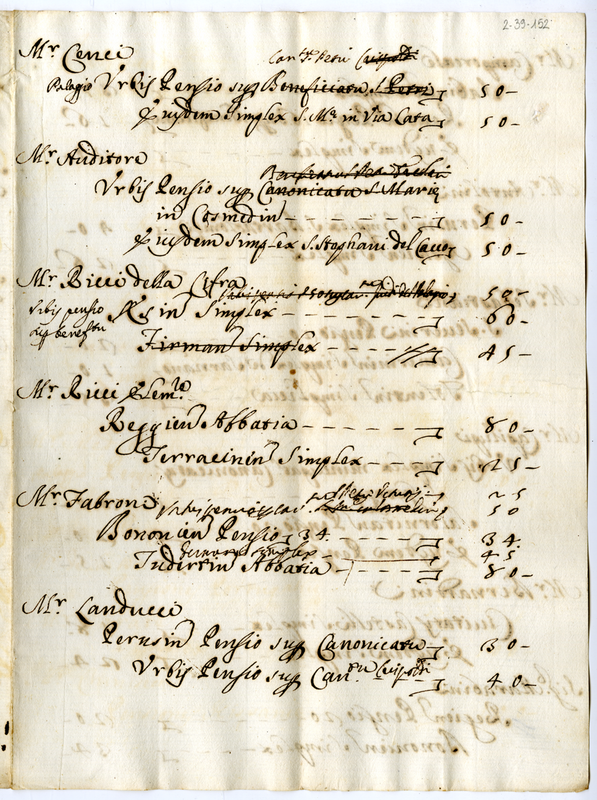 2-39-152
Mr. Cenci
Can.tu Petri
Palagio Urbis Pensio sup Beneficiatu S. Petri 50-
Ejusdem Simplex S. Ma. in Via Lata 50-
Mr. Auditore
Urbis Pensio sup Canonicatu S. Mariæ
in Cosmedin 50-
Ejusdem Simplex S. Stephani del Cacco 50-
Mr. Ricci della Cifra
50-
Urbis pensio
Simplex 60-
sup
Firman Simplex 45-
Mr. Ricci Elem.re
Reggien Abbatia 80-
Terracinen Simplex 25-
Mr. Fabroni
25
50
Bononien Pensio 34. 34.
Simplex 45
Tudertin Abbatia 80-
Mr. Landucci
Perusin Pensio sup Canonicatu 30-
Urbis Pensio sup Can.tu 40-